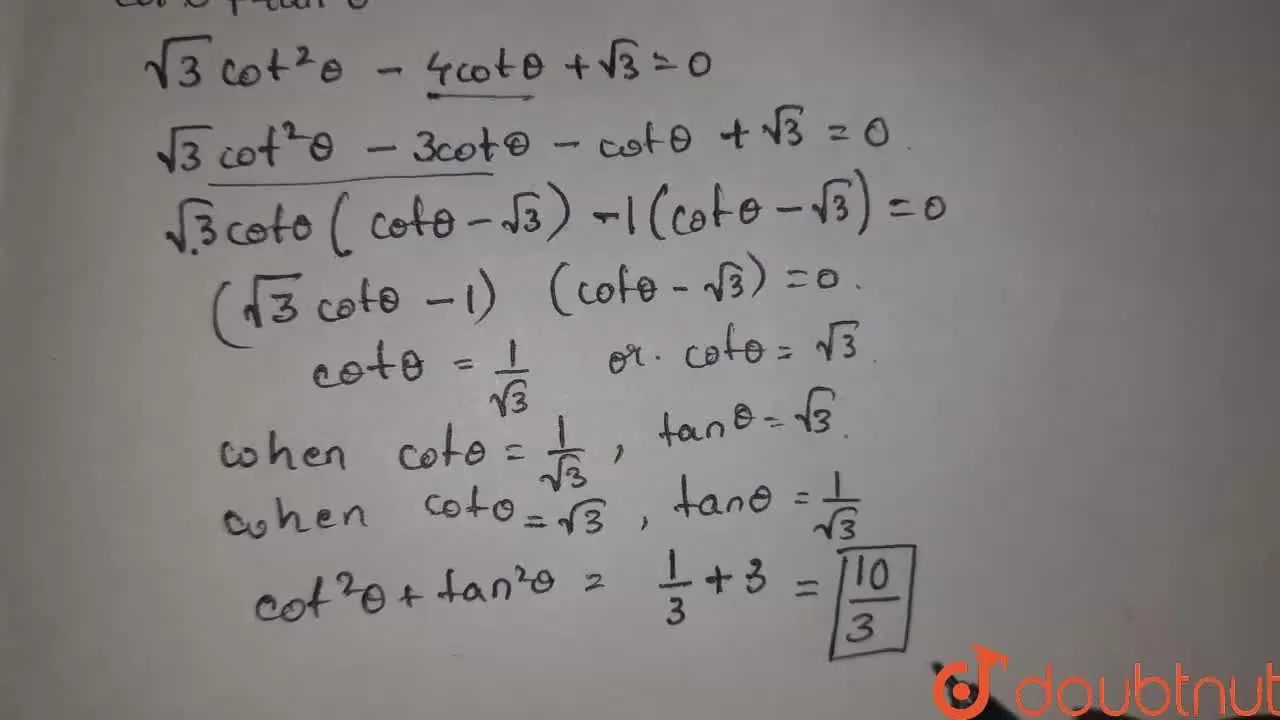 √3 cot²θ - 4cotθ + √3 = 0
√3 cot²θ - 3cotθ - cotθ + √3 = 0.
√3 cotθ ( cotθ - √3 ) - 1 ( cotθ - √3 ) = 0
(√3 cotθ - 1) (cotθ - √3) = 0.
cotθ = 1/√3 or. cotθ = √3.
when cotθ = 1/√3 , tanθ = √3.
when cotθ = √3 , tanθ = 1/√3
cot²θ + tan²θ = 1/3 + 3 = 10/3
doubtnut